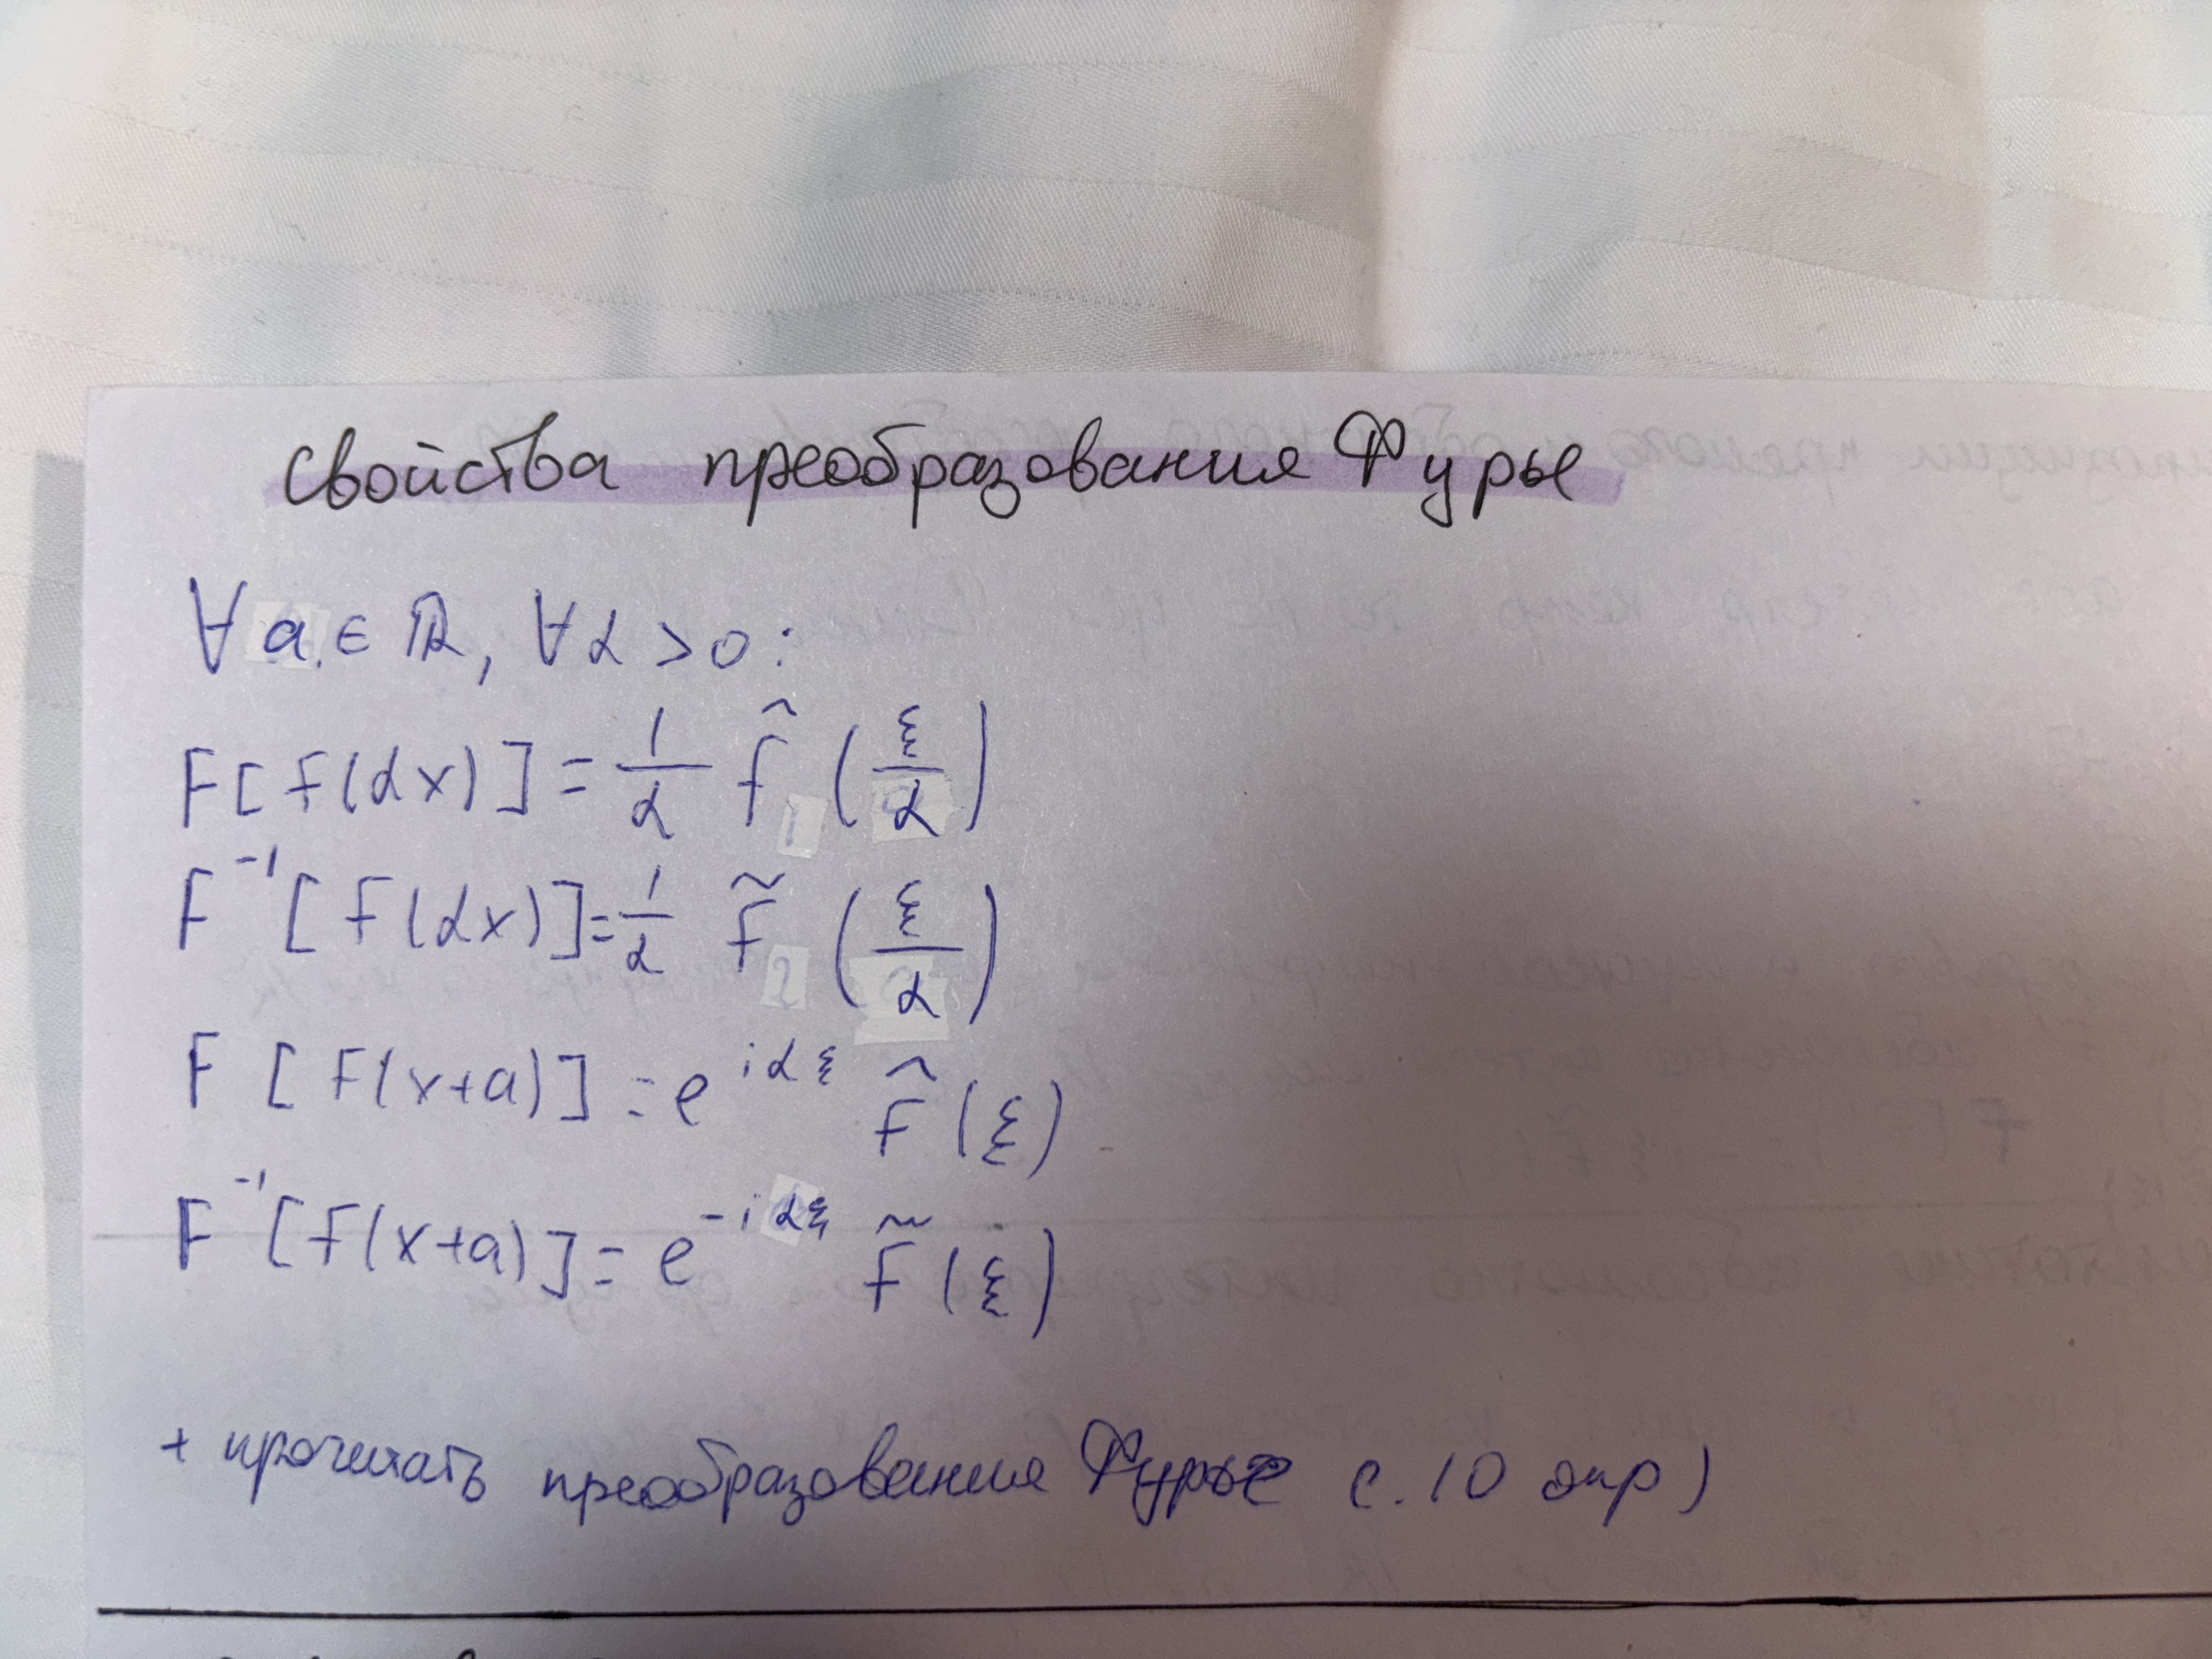 Свойства преобразования Фурье
∀ a ∈ ℝ, ∀ α > 0:
F[f(αx)] = 1/α f̂ (ξ/α)
F⁻¹[f(αx)] = 1/α f̃ (ξ/α)
F[f(x+a)] = e^{iαξ} f̂(ξ)
F⁻¹[f(x+a)] = e^{-iαξ} f̃(ξ)
+ прочитать преобразования Фурье с. 10 )